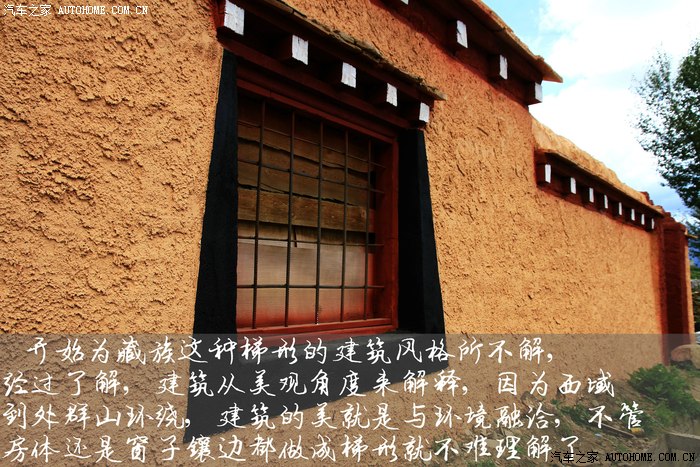 汽车之家 AUTOHOME.COM.CN
汽车之家 AUTOHOME.COM.CN
开始为藏族这种梯形的建筑风格所不解，
经过了解，建筑从美观角度来解释，因为西域
到处群山环绕，建筑的美就是与环境融洽，不管
房体还是窗子镶边都做成梯形就不难理解了
汽车之家 AUTOHOME.COM.CN